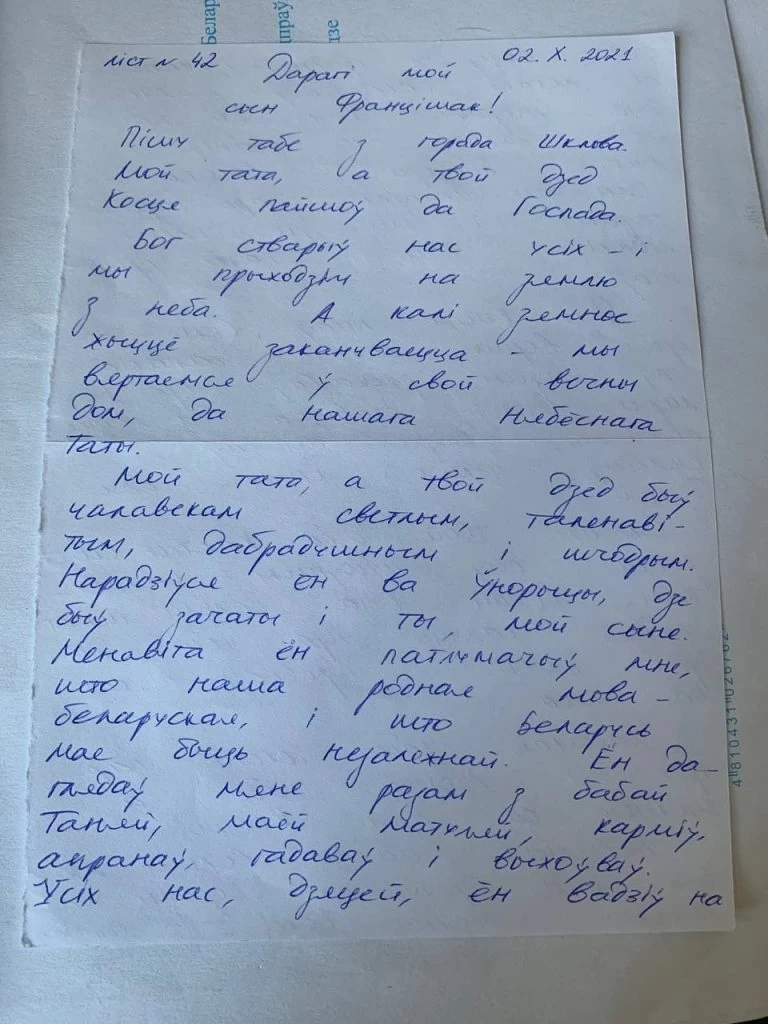 Белар
праў
дзе
ліст № 42 02. X. 2021
Дарагі мой
сын Францішак!
Пішу табе з горада Шклова.
Мой тата, а твой дзед
Косце пайшоў да Госпада.
Бог стварыў нас усіх – і
мы прыходзім на землю
з неба. А калі земное
жыццё заканчваецца – мы
вяртаемся ў свой вечны
дом, да нашага Нябёснага
Таты.
Мой тата, а твой дзед быў
чалавекам светлым, таленаві-
тым, дабрадушным і шчодрым.
Нарадзіўся ён ва Ўнорыцы, дзе
быў зачаты і ты, мой сыне.
Менавіта ён патлумачыў мне,
што наша родная мова –
беларуская, і што Беларусь
мае быць незалежнай. Ён да-
глядаў мяне разам з бабай
Таняй, маёй матуляй, карміў,
апранаў, гадаваў і выхоўваў.
Усіх нас, дзяцей, ён вадзіў на
4 810431 026762